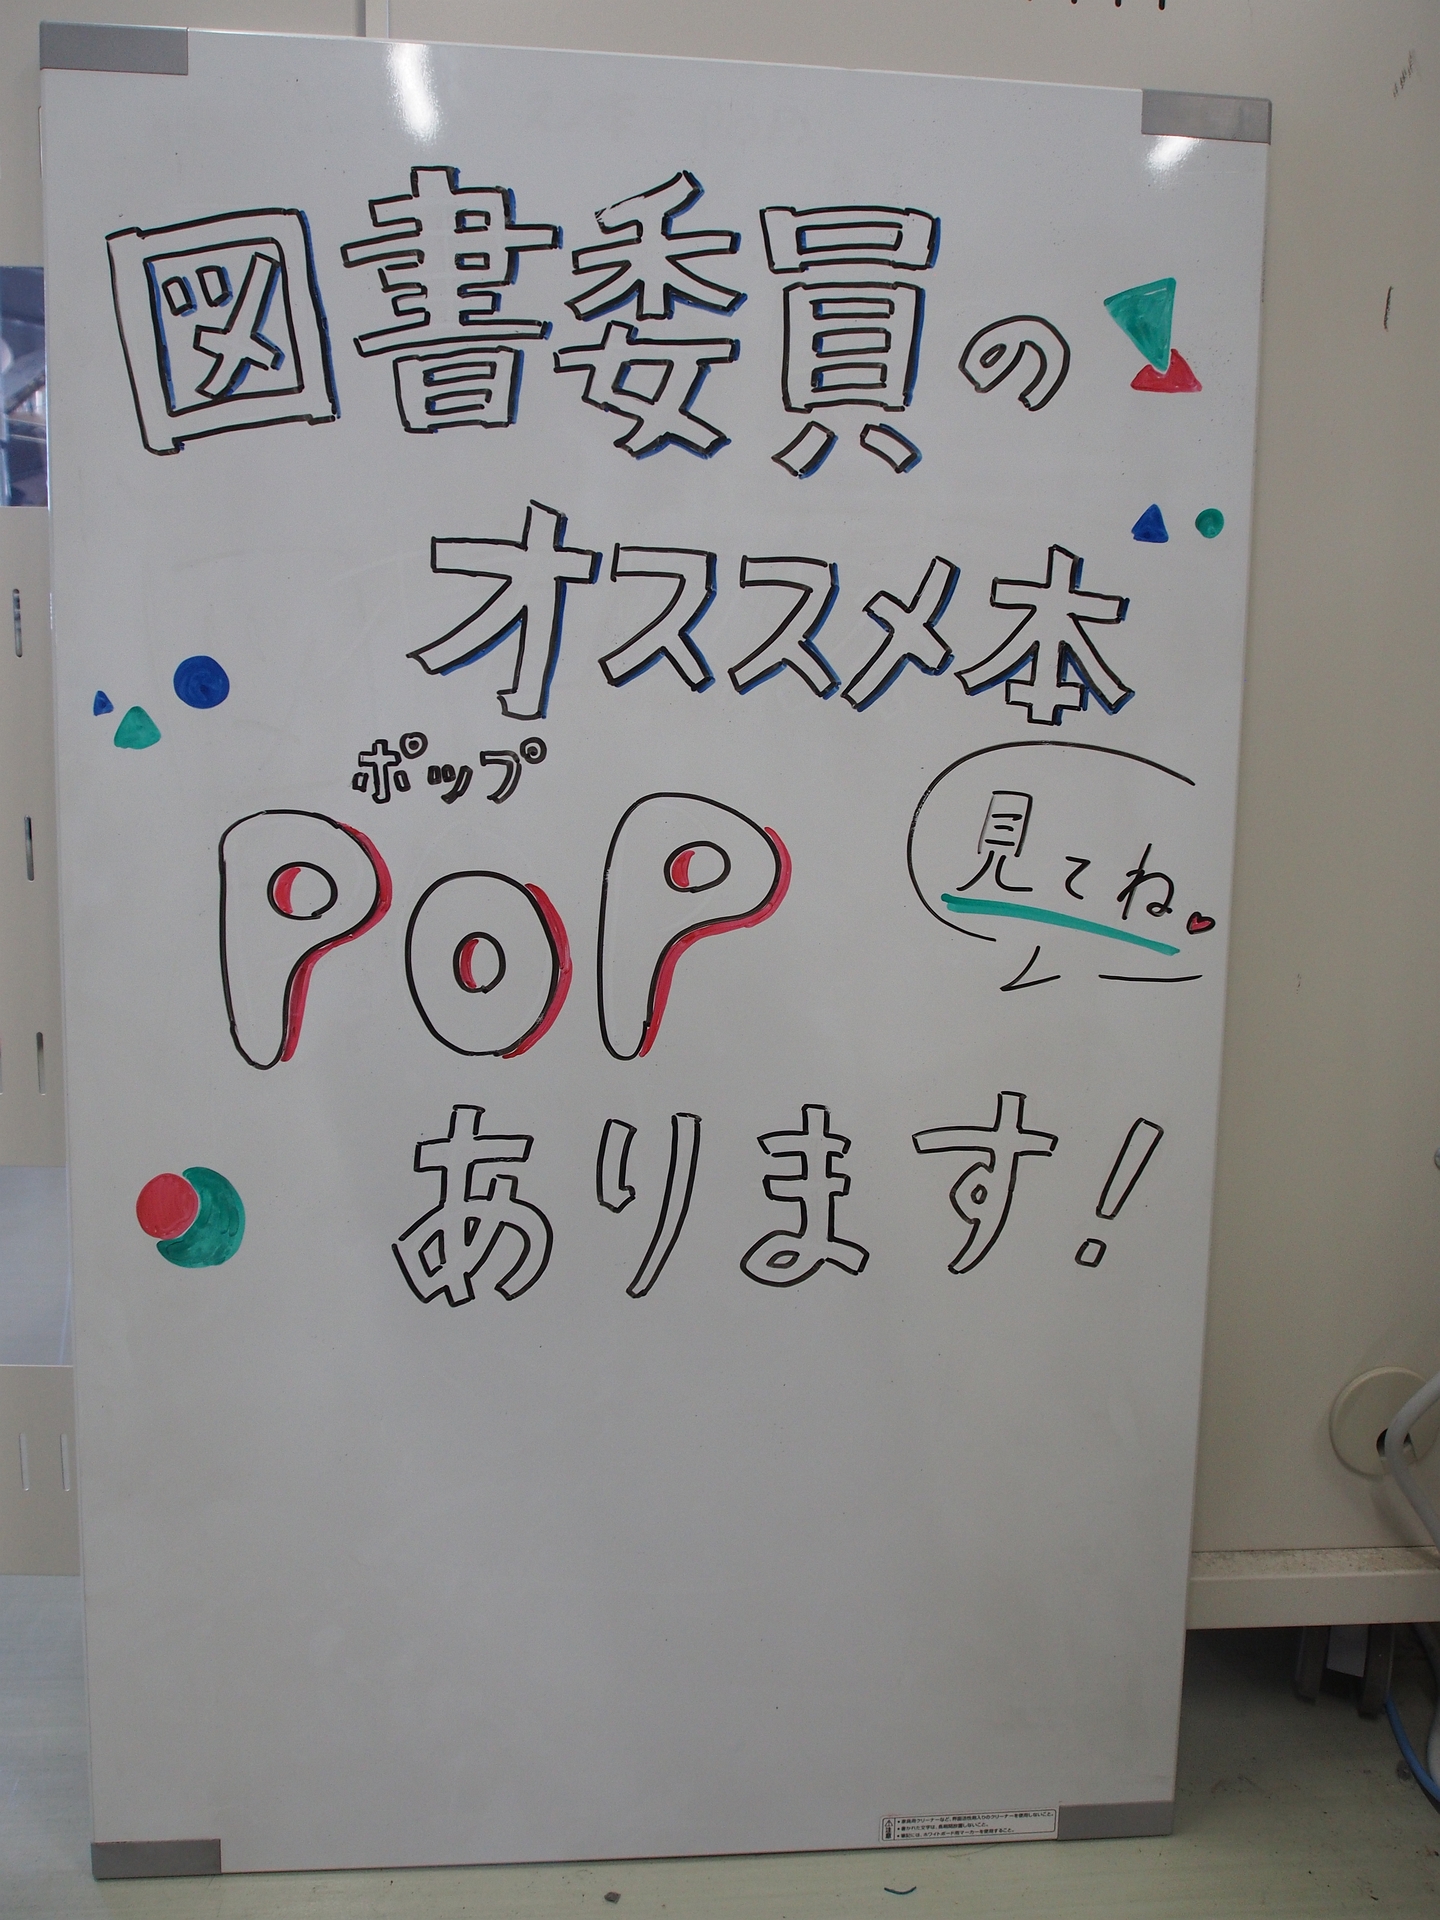 図書委員の
オススメ本
ポップ
POP
見てね
あります!